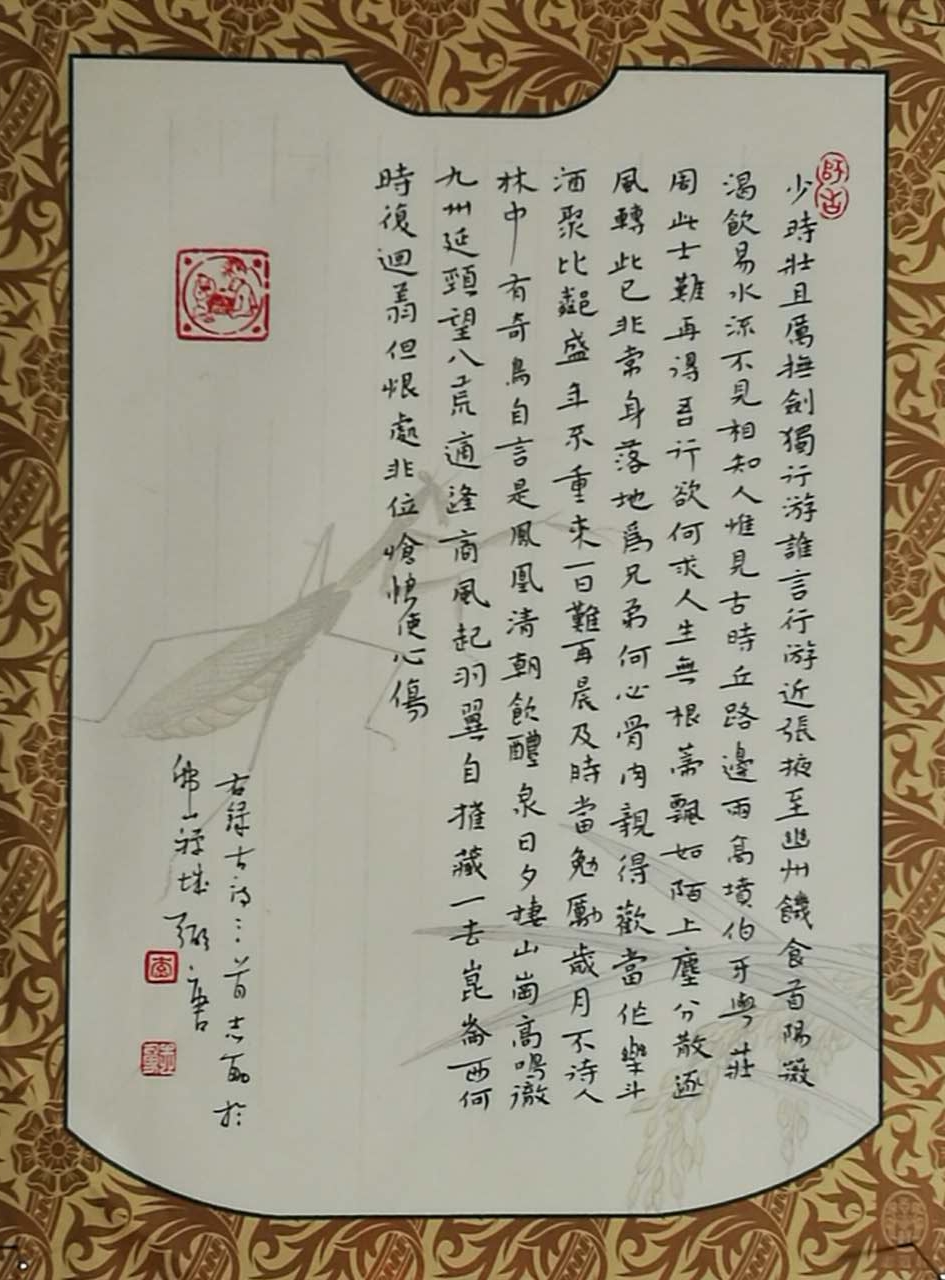 師古
少時壯且厲撫劍獨行游誰言行游近張掖至幽州饑食首陽薇
渴飲易水流不見相知人惟見古時丘路邊兩高墳伯牙與莊
周此士難再得吾行欲何求人生無根蒂飄如陌上塵分散逐
風轉此已非常身落地爲兄弟何必骨肉親得歡當作樂斗
酒聚比鄰盛年不重來一日難再晨及時當勉勵歲月不待人
林中有奇鳥自言是鳳凰清朝飲醴泉日夕棲山崗高鳴徹
九州延頸望八荒適逢商風起羽翼自摧藏一去崑崙西何
時復迴翔但恨處非位愴悢使心傷
右録古詩三首志於
佛山禪城唐
李